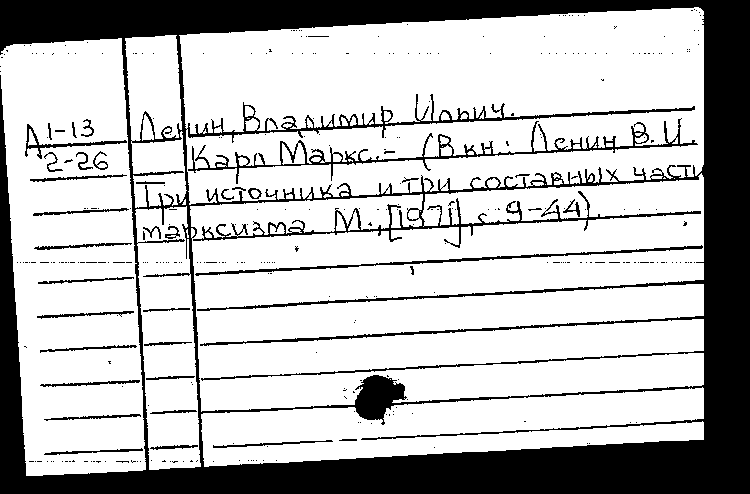 А 1-13
2-26
Ленин, Владимир Ильич.
Карл Маркс. – (В кн.: Ленин В. И.
Три источника и три составных части
марксизма. М., [1971], с. 9-44).